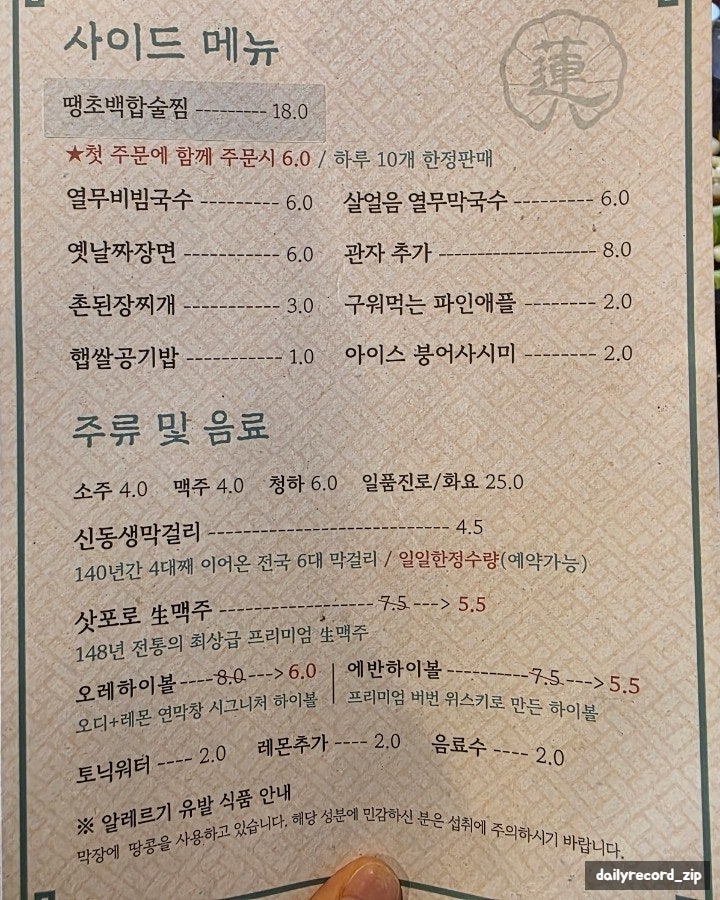 사이드 메뉴
蓮
땡초백합술찜 --------- 18.0
★첫 주문에 함께 주문시 6.0 / 하루 10개 한정판매
열무비빔국수 ---------- 6.0 살얼음 열무막국수 ---------- 6.0
옛날짜장면 ------------ 6.0 관자 추가 -------------------- 8.0
촌된장찌개 ------------ 3.0 구워먹는 파인애플 --------- 2.0
햅쌀공기밥 ------------ 1.0 아이스 붕어사시미 --------- 2.0
주류 및 음료
소주 4.0 맥주 4.0 청하 6.0 일품진로/화요 25.0
신동생막걸리 ------------------------------ 4.5
140년간 4대째 이어온 전국 6대 막걸리 / 일일한정수량(예약가능)
삿포로 生맥주 ------------------- 7.5 ---> 5.5
148년 전통의 최상급 프리미엄 生맥주
오레하이볼 ---- 8.0 ---> 6.0 | 에반하이볼 ---------- 7.5 ---> 5.5
오디+레몬 연막창 시그니처 하이볼 | 프리미엄 버번 위스키로 만든 하이볼
토닉워터 ---- 2.0 레몬추가 ---- 2.0 음료수 ---- 2.0
※ 알레르기 유발 식품 안내
막장에 땅콩을 사용하고 있습니다. 해당 성분에 민감하신 분은 섭취에 주의하시기 바랍니다.
dailyrecord_zip